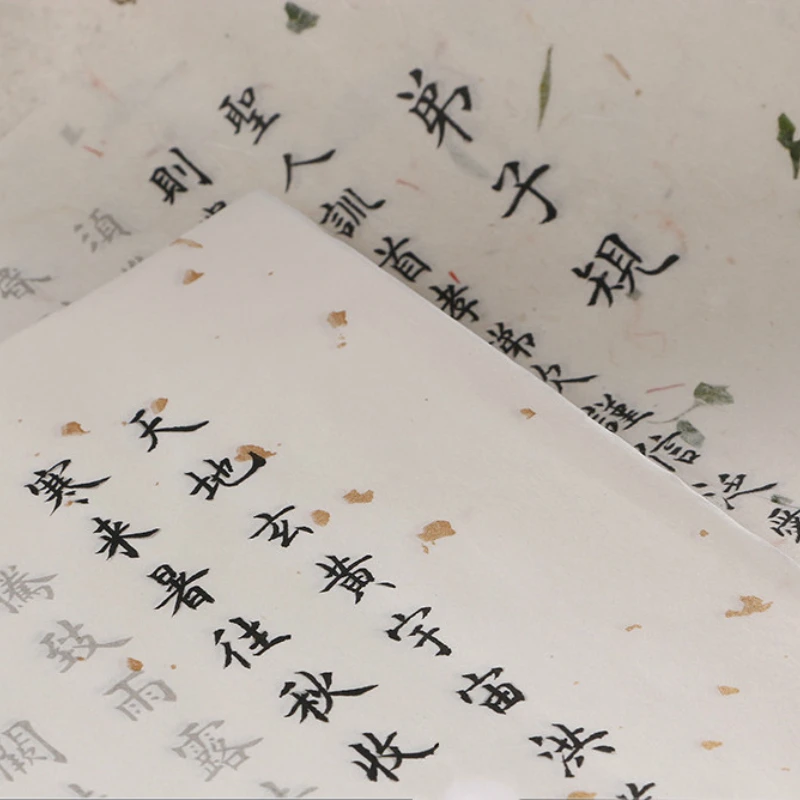 弟子規
聖人訓首孝弟次謹信泛
則
須
天地玄黄宇宙洪
寒来暑往秋收
騰致雨露
闕